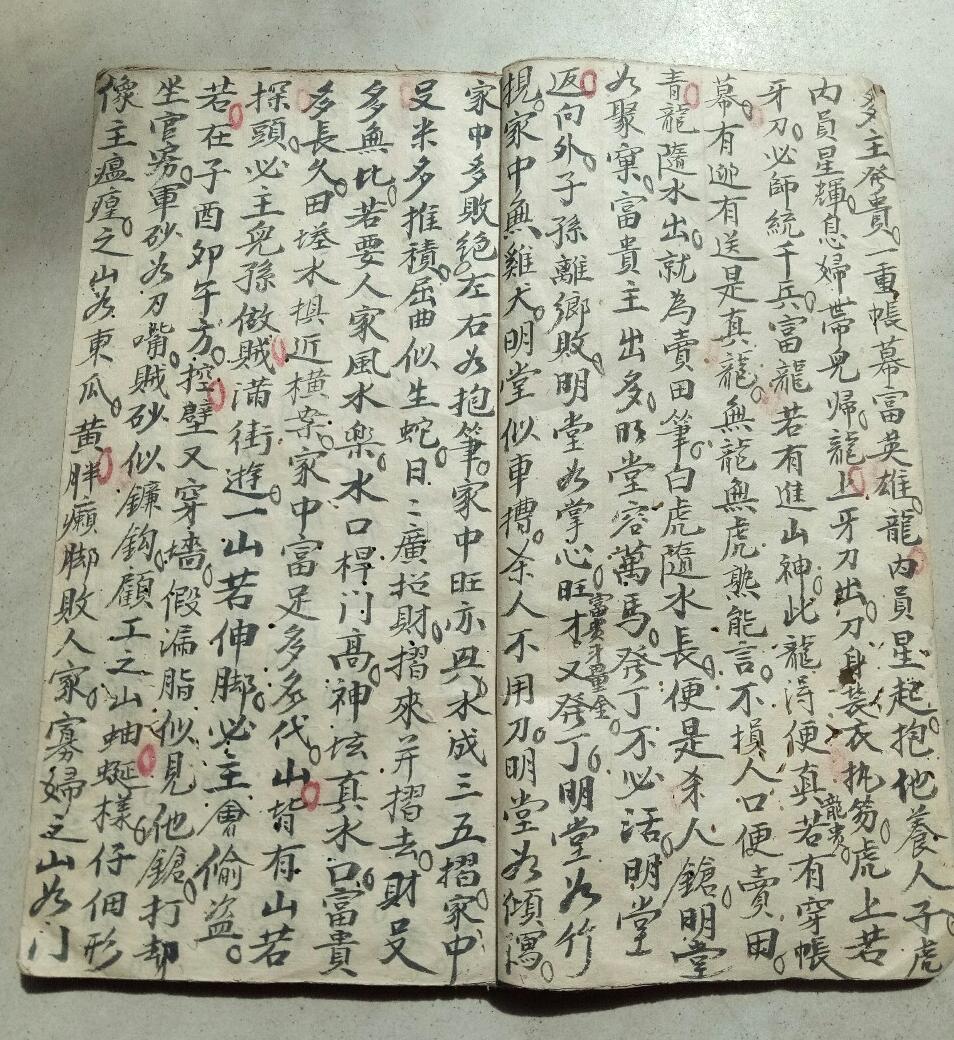 多主發貴。一重帳幕富英雄。龍內員星起。抱他養人子虎
內員星輝。息婦帶兒歸。龍上牙刀出。刀身裝衣执笏。虎上若
牙刀。必師統千兵。富龍若有進山神。此龍得便真龍貴。若有穿帳
幕。有迎有送是真龍。無龍無虎熟能言。不損人口便賣田。
青龍隨水出。就為賣田筆。白虎隨水長。便是杀人鎗。明堂
如聚窠。富貴主出多。明堂容萬馬。發丁不必活。明堂
返向外。子孫離鄉敗。明堂如掌心。富貴斗量金。旺才又發丁。明堂如竹
挸。家中無雞犬。明堂似車槽。杀人不用刀。明堂如傾瀉。
家中多敗絕。左右如抱筆。家中旺亦興。水成三五摺。家中
叐米多推積。屈曲似生蛇。日〻廣招財。摺來并摺去。財叐
多無比。若要人家風水樂。水口桿门高。神坛真水口。富貴
多長久。田塆水俱近橫案。家中富足多多代。山背有山若
探頭。必主兒孫做賊滿街遊。一山若伸脚。必主會偷盗。
若在子酉卯午方。控壁又穿墻。假漏脂似見他鎗。打却
坐官穷。軍砂如刀嘴。賊砂似鐮鈎。顧工之山蚰蜒樣。仔细形
像主瘟㾮。之山如東瓜。黄胖癩脚敗人家。寡婦之山如门